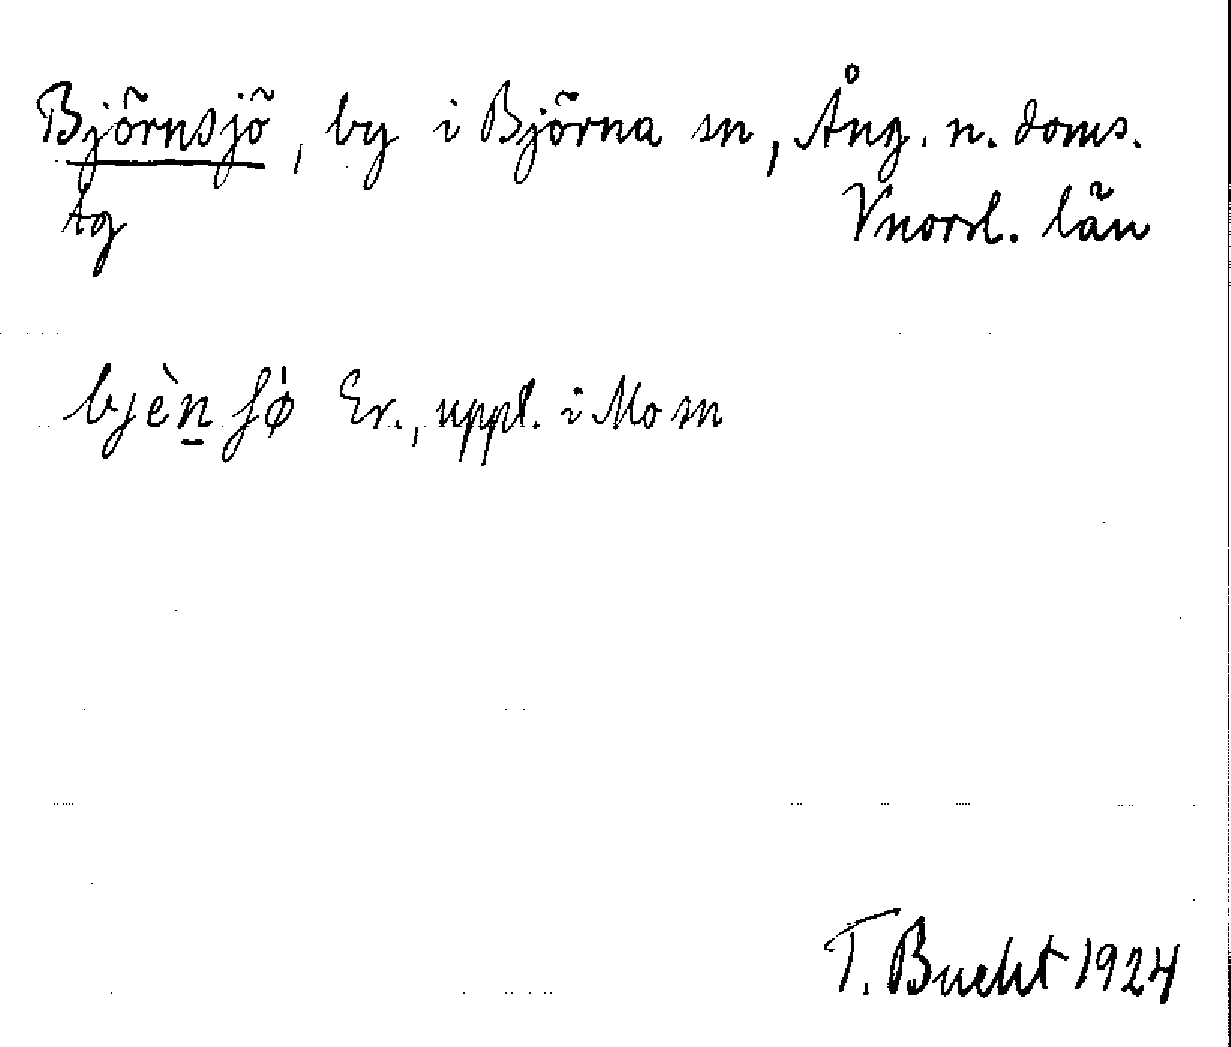 Björnsjö, by i Björna sn, Ång. n. doms.
tg Vnorrl. län
bjèn̠ ʃø̀ Er., uppt. i Mo sn
T. Bucht 1924